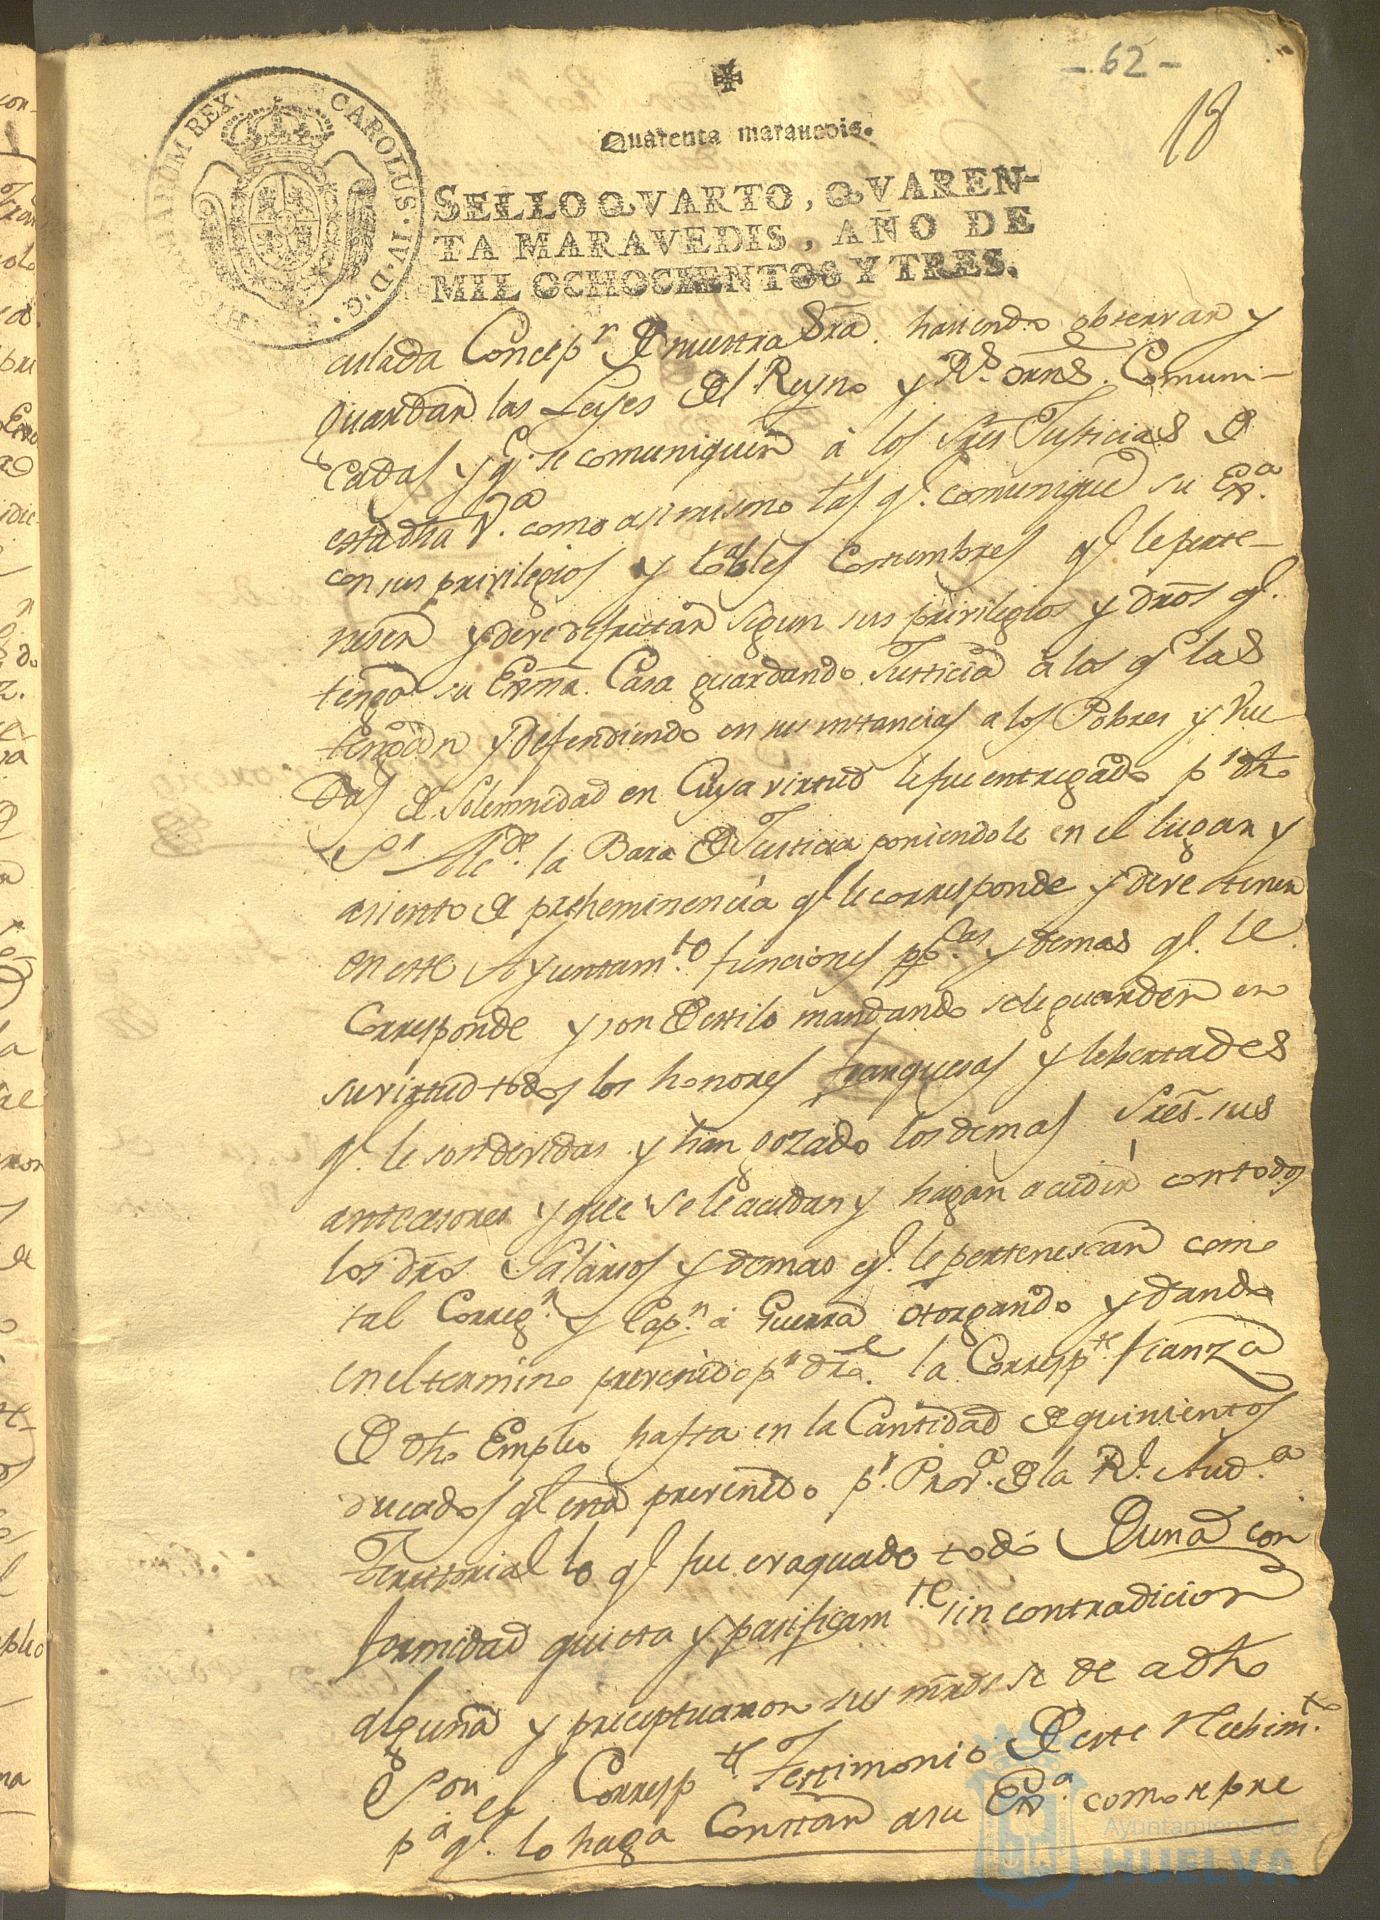 - 62 -
18
Quarenta maravedis.
SELLO QVARTO, QVAREN-
TA MARAVEDIS, AÑO DE
MIL OCHOCIENTOS Y TRES.
HISPANIARUM REX. CAROLUS. IV. D. G.
culada Concepn. de nuestra Sra. haciendo observar y
guardar las Leyes del Reyno y Rs. orns. Comuni-
cadas y q. se comuniquen á los Sres Justicias de
esta dha Va. como asi mismo las q. comunique su Exa.
con sus privilegios y loables costumbres q. le perte-
nesen y deve desfruttar segun sus privilegios y dros q.
tenga su Exma. Casa guardando Justicia á los q. las
tengan y defendiendo en sus instancias a los Pobres y Viu
das de Solemnidad en Cuya virtud le fue entregado pr. dho
Sr Alcde. la Bara de Justicia poniendole en el lugar y
asiento de preheminencia q. le corresponde y deve tener
en este Ayuntamto. funciones ppcas y demas q. le
Corresponde y son de estilo mandando se le guarden en
su virtud todos los honores franquesas y libertades
q. le son devidas y han gozado los demas Sres. sus
antecesores y que se le acudan y hagan acudir con todos
los dros. Salarios y demas q. le pertenescan como
tal Corregr. y Capn. á Guerra otorgando y dando
en el termino prevenido pr dro. la Correspte. fianza
de dho Empleo hasta en la Cantidad de quinientos
ducados q. está prevenido pr. Prova. de la Rl. Auda.
Territorial lo q. fue evaquado todo de una con
formidad quieta y pasificamte. sin contradicion
alguna y preceptuaron sus mrds se de a dho
Sor. el Correspte. Testimonio de este Recibimto.
pa. q. lo haga Constar a su Exa. como repre
Ayuntamiento de
HUELVA